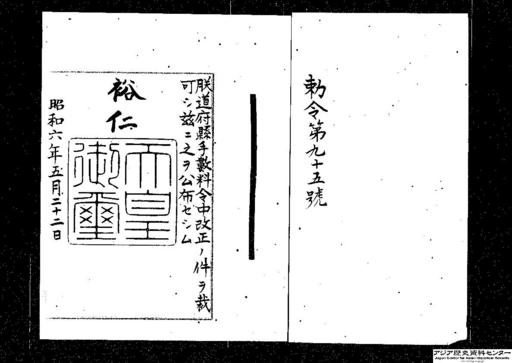 勅令第九十五號
朕道府縣手數料令中改正ノ件ヲ裁
可シ玆ニ之ヲ公布セシム
裕仁
天皇
御璽
昭和六年五月二十二日
アジア歴史資料センター
Japan Center for Asian Historical Records